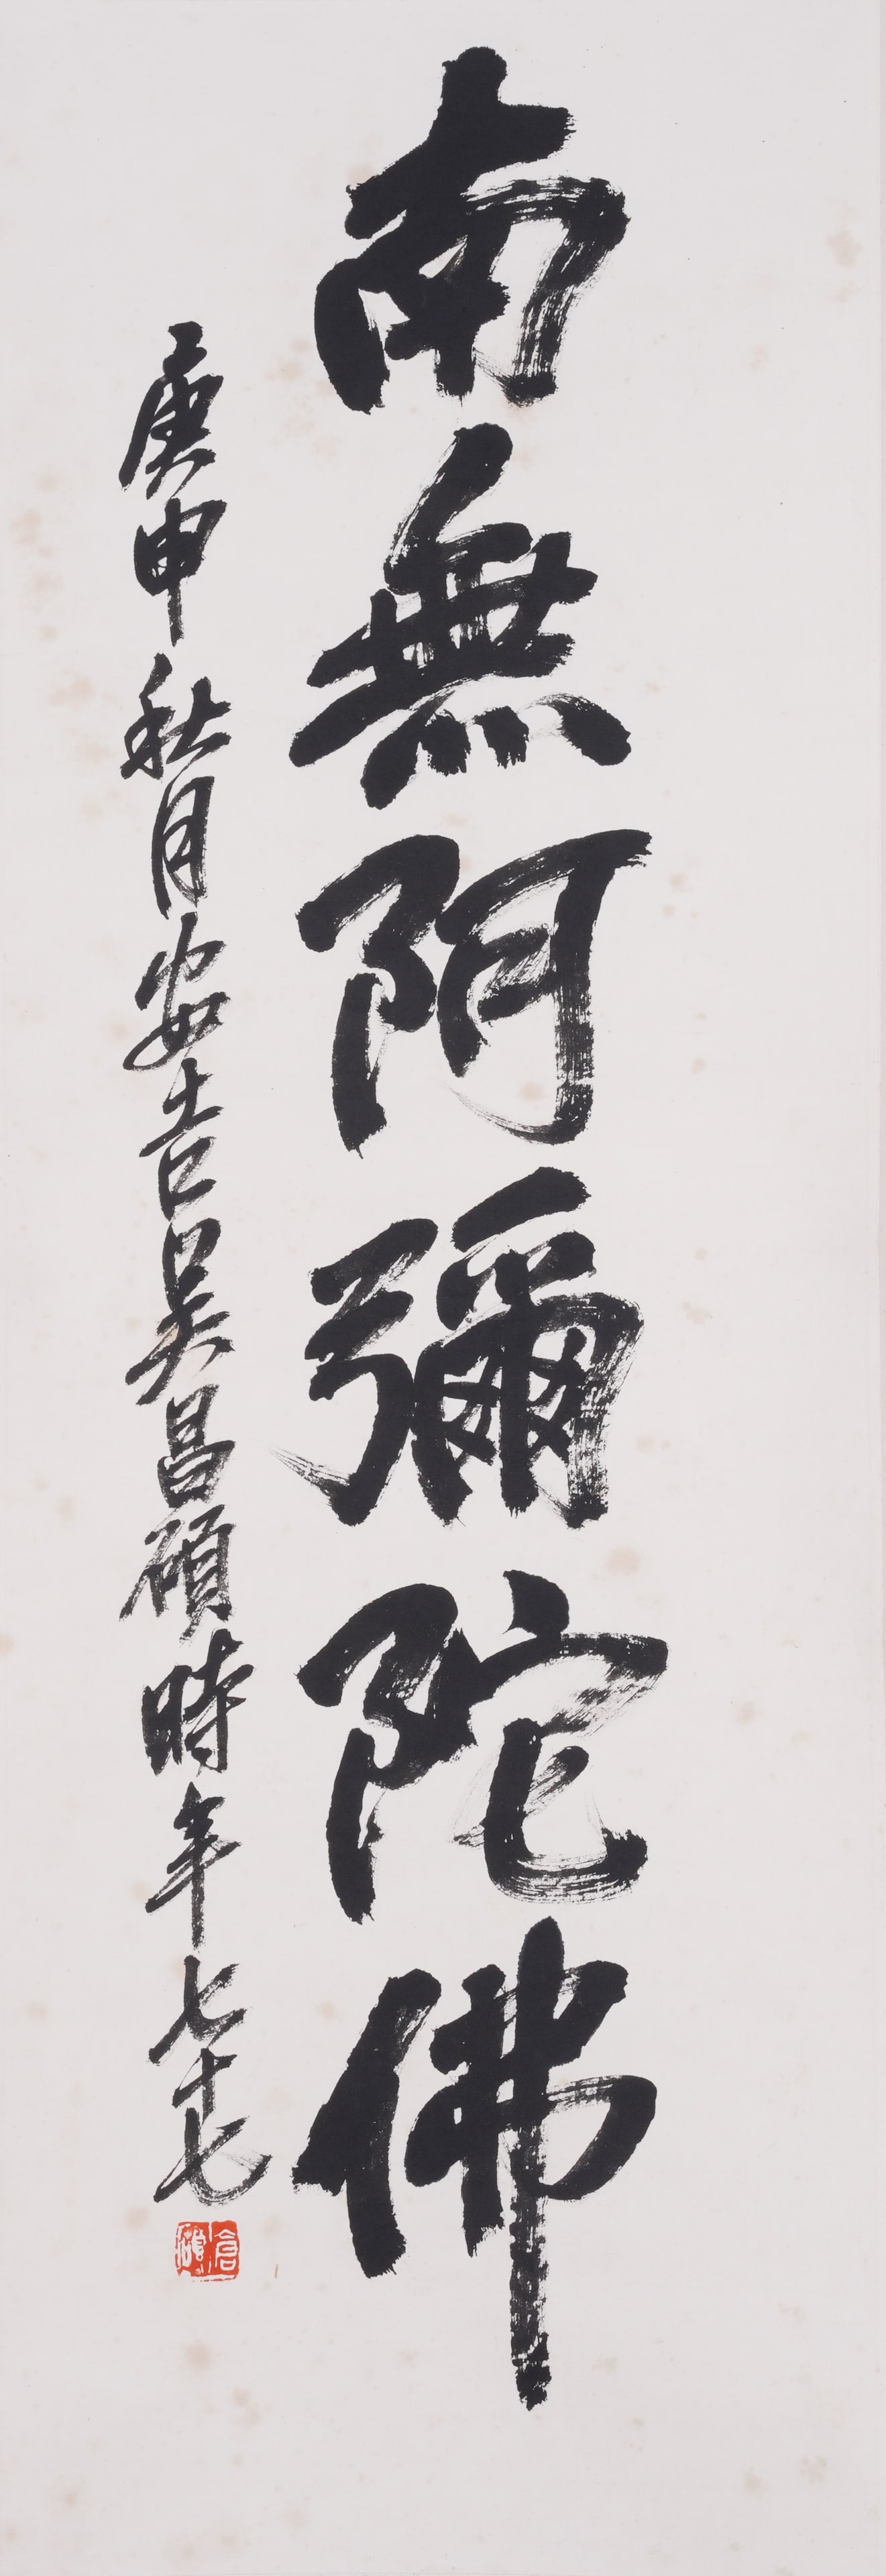 南無阿彌陀佛
庚申秋月安吉吳昌碩時年七十七
倉碩